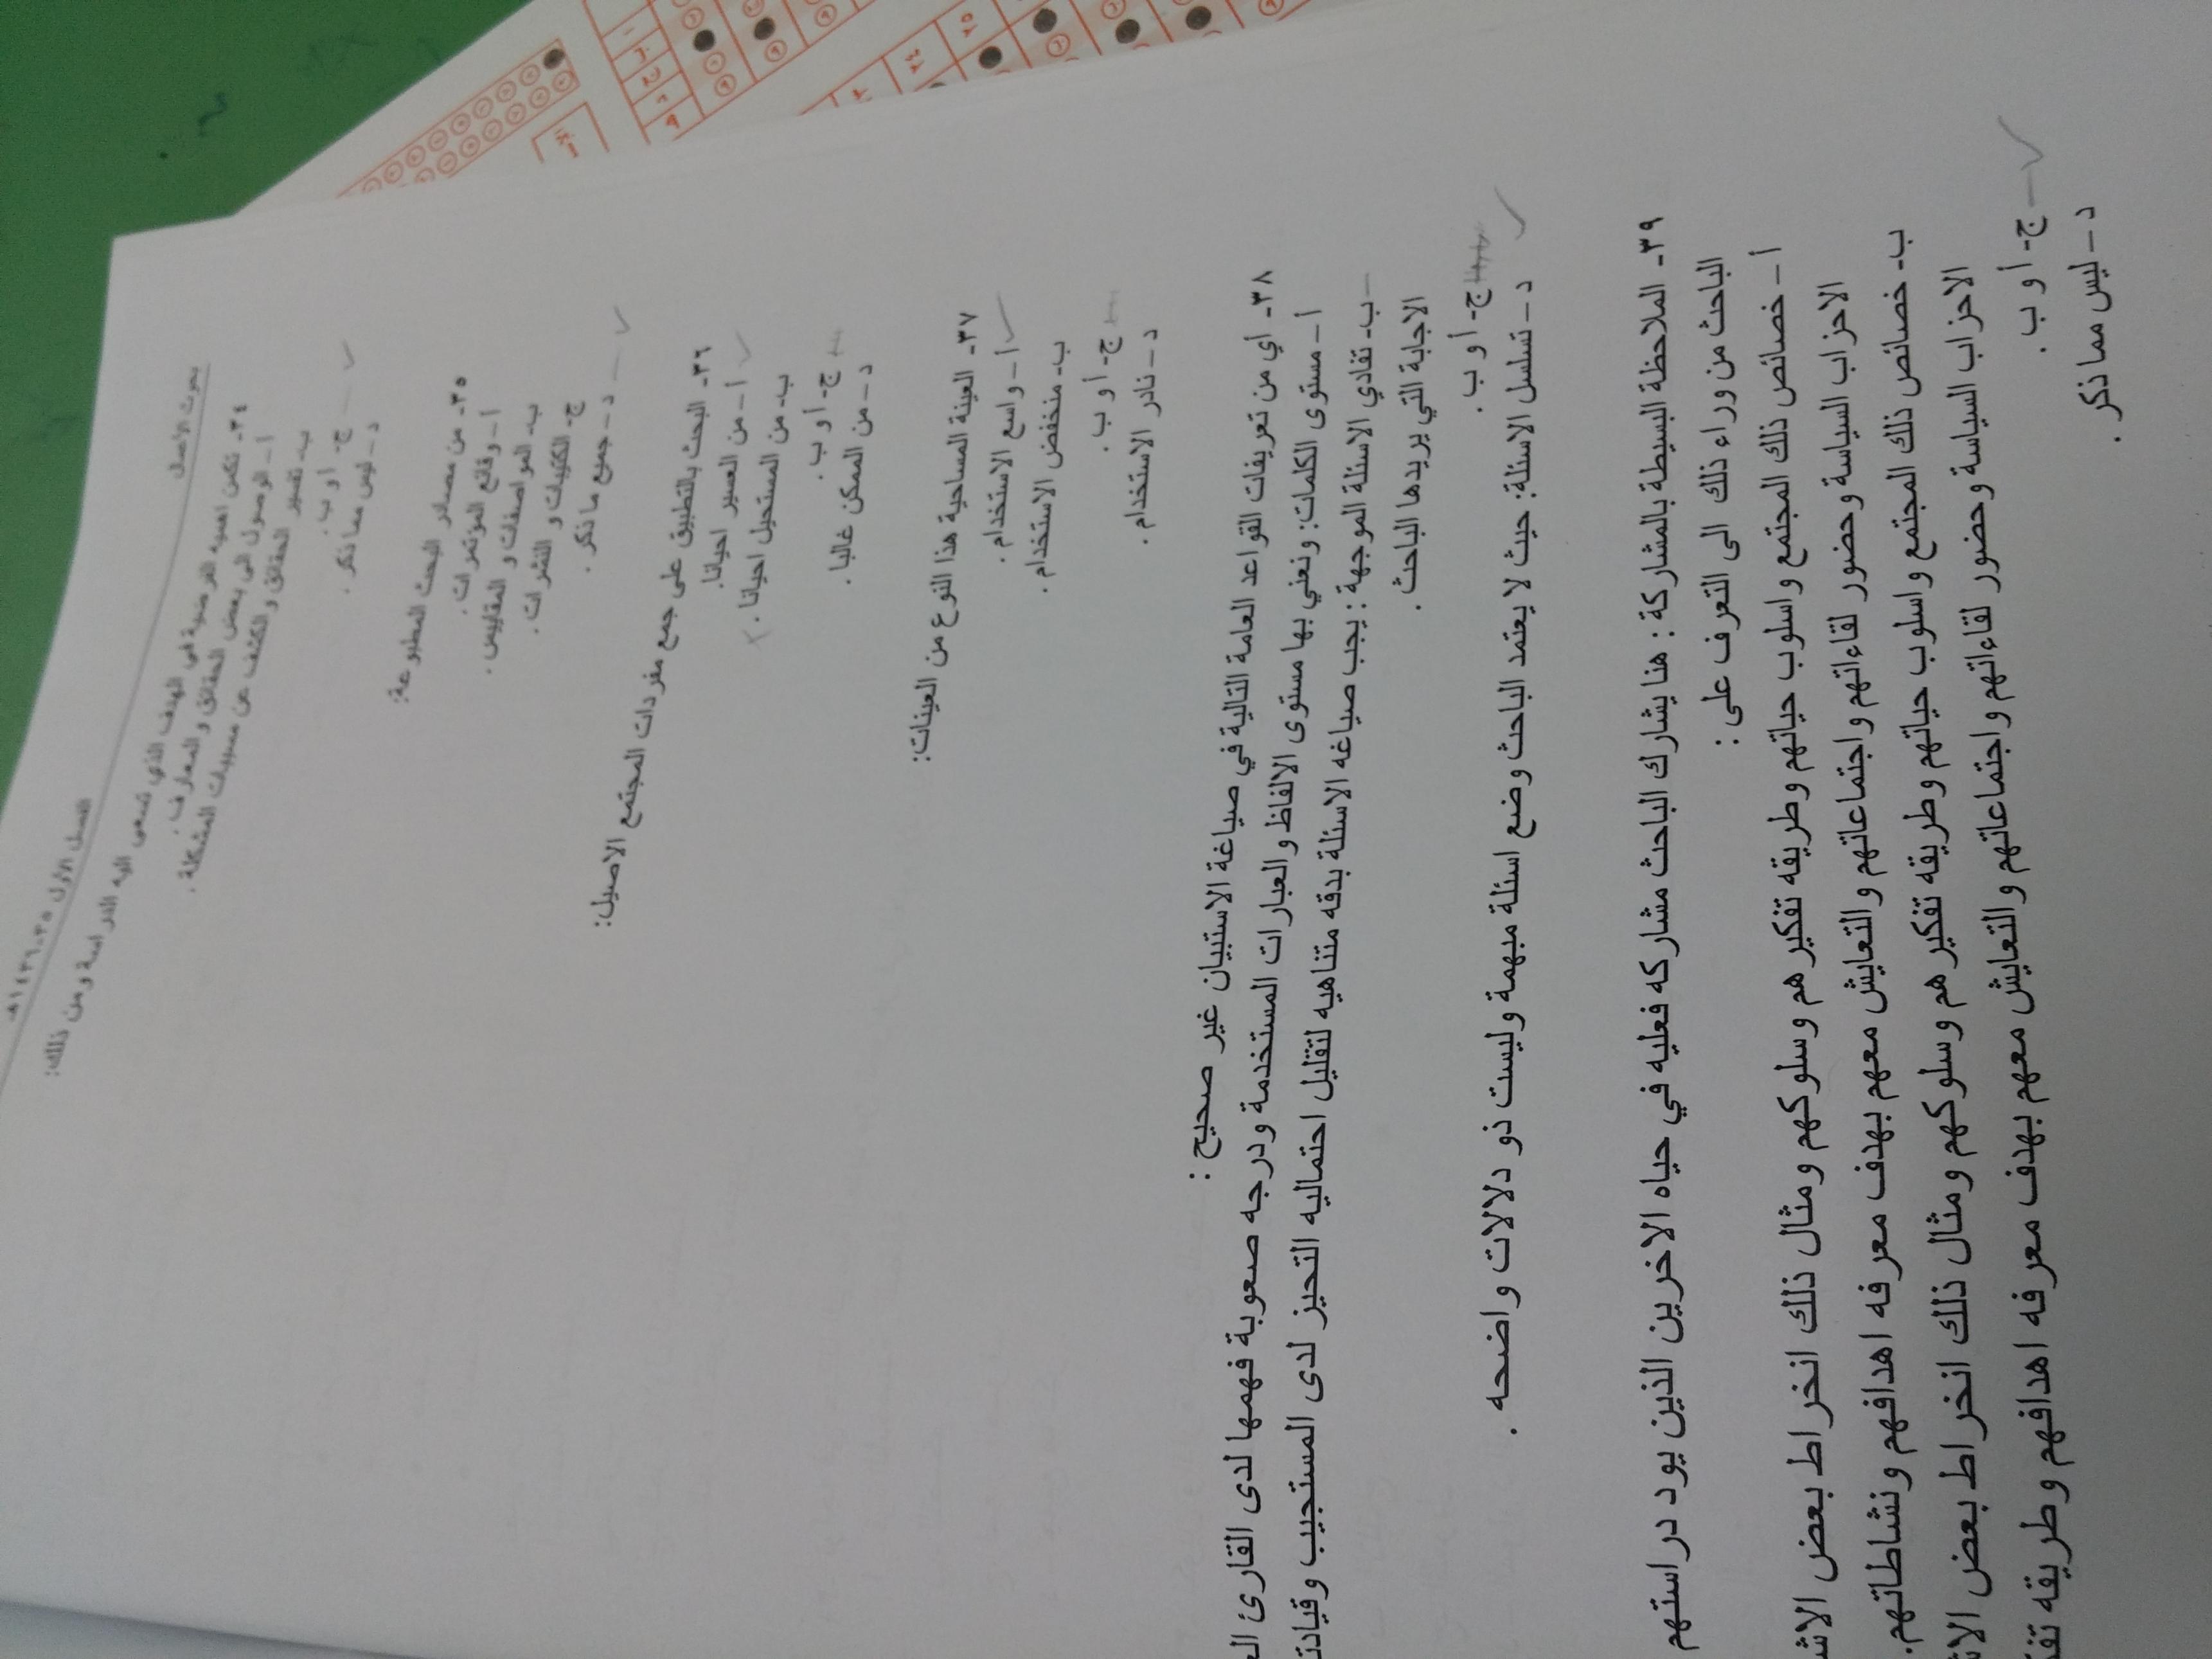 بحوث الأعمال
الفصل الاول ٣٥-١٤٣٦هـ
٣٤- تكمن اهمية الفرضية في الهدف الذي تسعى اليه الدراسة ومن ذلك:
أ – الوصول الى بعض الحقائق والمعارف .
ب- تفسير الحقائق والكشف عن مسببات المشكلة .
ج- أ و ب .
د – ليس مما ذكر .
٣٥- من مصادر البحث المطبوعة:
أ – وقائع المؤتمرات .
ب- المواصفات و المقاييس .
ج- الكتيبات و النشرات .
د – جميع ما ذكر .
٣٦- البحث بالتطبيق على جمع مفردات المجتمع الاصيل:
أ – من العسير احيانا.
ب- من المستحيل احيانا .
ج- أ و ب .
د – من الممكن غالبا .
٣٧- العينة المساحية هذا النوع من العينات:
أ – واسع الاستخدام .
ب- منخفض الاستخدام .
ج- أ و ب .
د – نادر الاستخدام .
٣٨- أي من تعريفات القواعد العامة التالية في صياغة الاستبيان غير صحيح :
أ – مستوى الكلمات: ونعني بها مستوى الالفاظ والعبارات المستخدمة ودرجه صعوبة فهمها لدى القارئ
ب- تفادي الاسئلة الموجهة : يجب صياغه الاسئلة بدقه متناهيه لتقليل احتماليه التحيز لدى المستجيب
الاجابة التي يريدها الباحث .
ج- أ و ب .
د – تسلسل الاسئلة: حيث لا يعتمد الباحث وضع اسئلة مبهمة وليست ذو دلالات واضحه .
٣٩- الملاحظة البسيطة بالمشاركة : هنا يشارك الباحث مشاركه فعليه في حياه الاخرين الذين يود دراستهم
الباحث من وراء ذلك الى التعرف على :
أ – خصائص ذلك المجتمع واسلوب حياتهم وطريقه تفكيرهم وسلوكهم ومثال ذلك انخراط بعض
الاحزاب السياسة وحضور لقاءاتهم واجتماعاتهم والتعايش معهم بهدف معرفه اهدافهم ونشاطاتهم.
ب- خصائص ذلك المجتمع واسلوب حياتهم وطريقه تفكيرهم وسلوكهم ومثال ذلك انخراط بعض
الاحزاب السياسة وحضور لقاءاتهم واجتماعاتهم والتعايش معهم بهدف معرفه اهدافهم وطريقه
ج- أ و ب .
د – ليس مما ذكر .